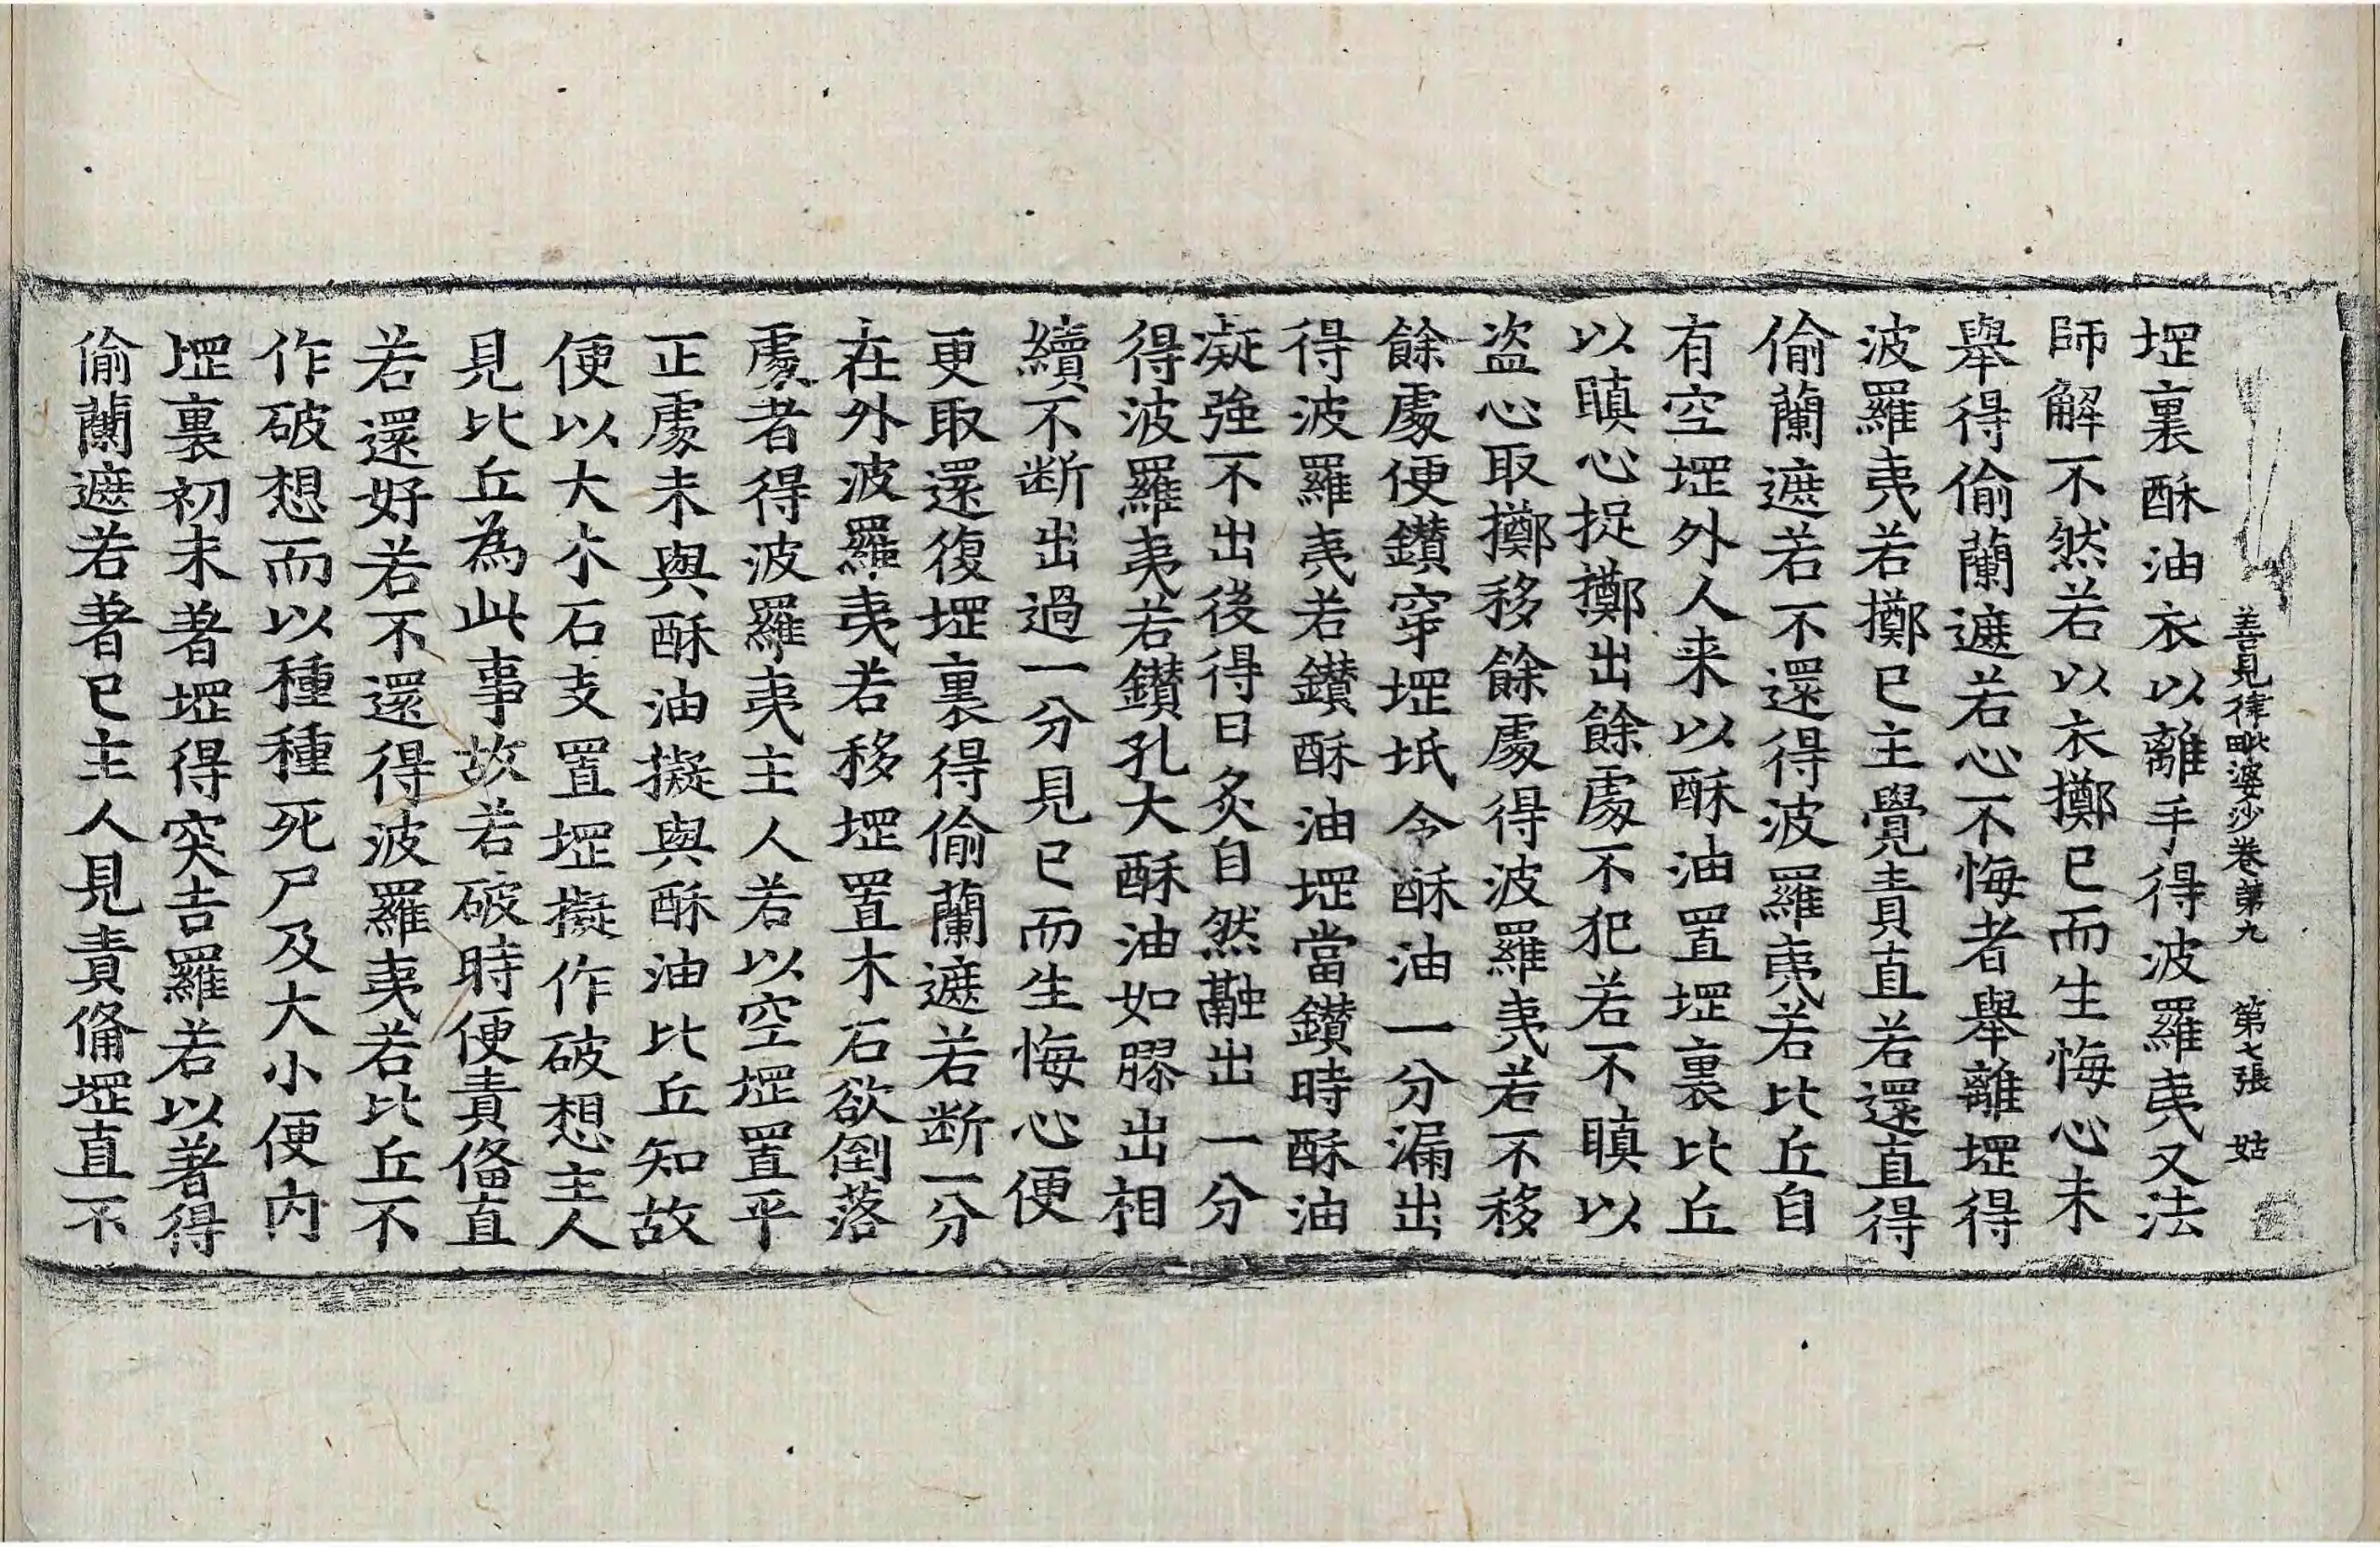 善見律毗婆沙卷第九 第七張 姑
堽裏酥油衣以離手得波羅夷又法
師解不然若以衣擲已而生悔心未
舉得偷蘭遮若心不悔者舉離堽得
波羅夷若擲已主覺責直若還直得
偷蘭遮若不還得波羅夷若比丘自
有空堽外人来以酥油置堽裏比丘
以瞋心捉擲出餘處不犯若不瞋以
盗心取擲移餘處得波羅夷若不移
餘處便鑚穿堽坻令酥油一分漏出
得波羅夷若鑚酥油堽當鑚時酥油
凝強不出後得日炙自然融出一分
得波羅夷若鑚孔大酥油如膠出相
續不断出過一分見已而生悔心便
更取還復堽裏得偷蘭遮若断一分
在外波羅夷若移堽置木石欲倒落
處者得波羅夷主人若以空堽置平
正處未與酥油擬與酥油比丘知故
便以大木石支置堽擬作破想主人
見比丘為此事故若破時便責俻直
若還好若不還得波羅夷若比丘不
作破想而以種種死尸及大小便内
堽裏初未著堽得突吉羅若以著得
偷蘭遮若著已主人見責俻堽直不